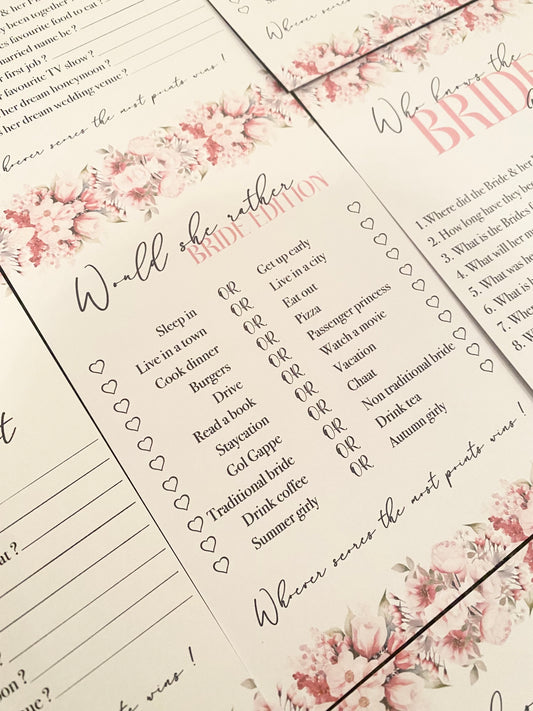 & her
s favourite food to eat ?
married name be ?
r first job ?
r favourite TV show ?
her dream honeymoon ?
s her dream wedding venue ?
hoever scores the most points wins !
Whoever
Would she rather
BRIDE EDITION
Sleep in OR Get up early
Live in a town OR Live in a city
Cook dinner OR Eat out
Burgers OR Pizza
Drive OR Passenger princess
Read a book OR Watch a movie
Staycation OR Vacation
Gol Gappe OR Chaat
Traditional bride OR Non traditional bride
Drink coffee OR Drink tea
Summer girly OR Autumn girly
Whoever scores the most points wins !
Who knows the
BRIDE
1. Where did the Bride & her
2. How long have they bee
3. What is the Brides
4. What will her m
5. What was he
6. What is h
7. Whe
8. W
t
at ?
oon ?
nue ?
points wins !